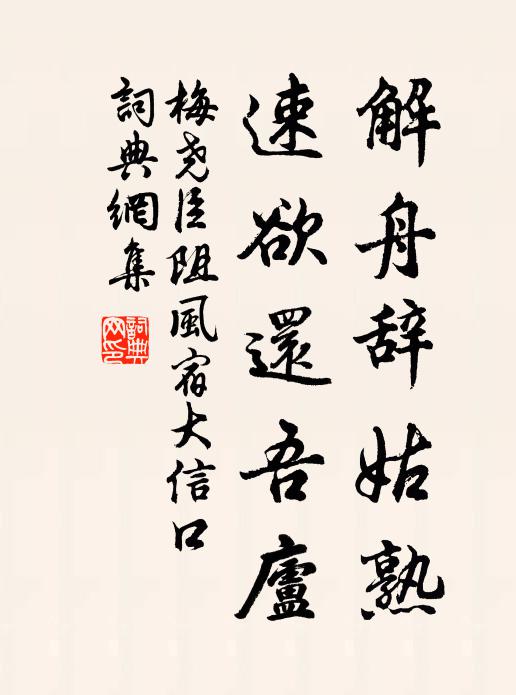 解舟辞姑熟
速欲還吾廬
梅尧臣阻風宿大信口
詞典網集
詞典
网印